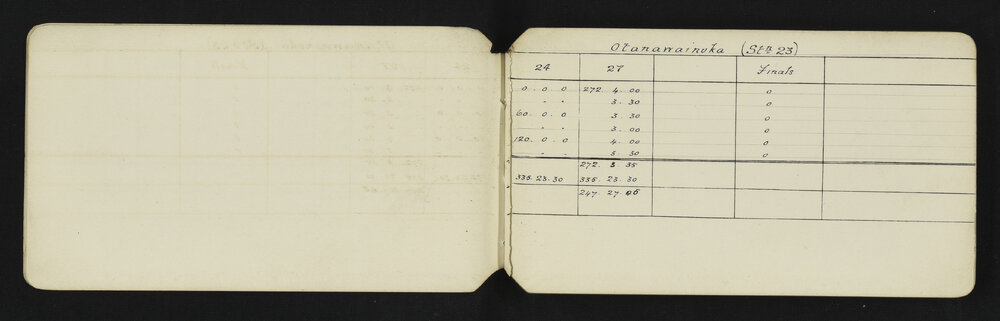 Otanawainuka (Stn 23)
24 27 Finals
0 . 0 . 0 272 . 4 . 00 0
. . 3 . 30 0
60 . 0 . 0 3 . 30 0
. . 3 . 00 0
120 . 0 . 0 4 . 00 0
. . 3 . 30 0
272 . 3 . 35
335 . 23 . 30 335 . 23 . 30
247 27 . 05